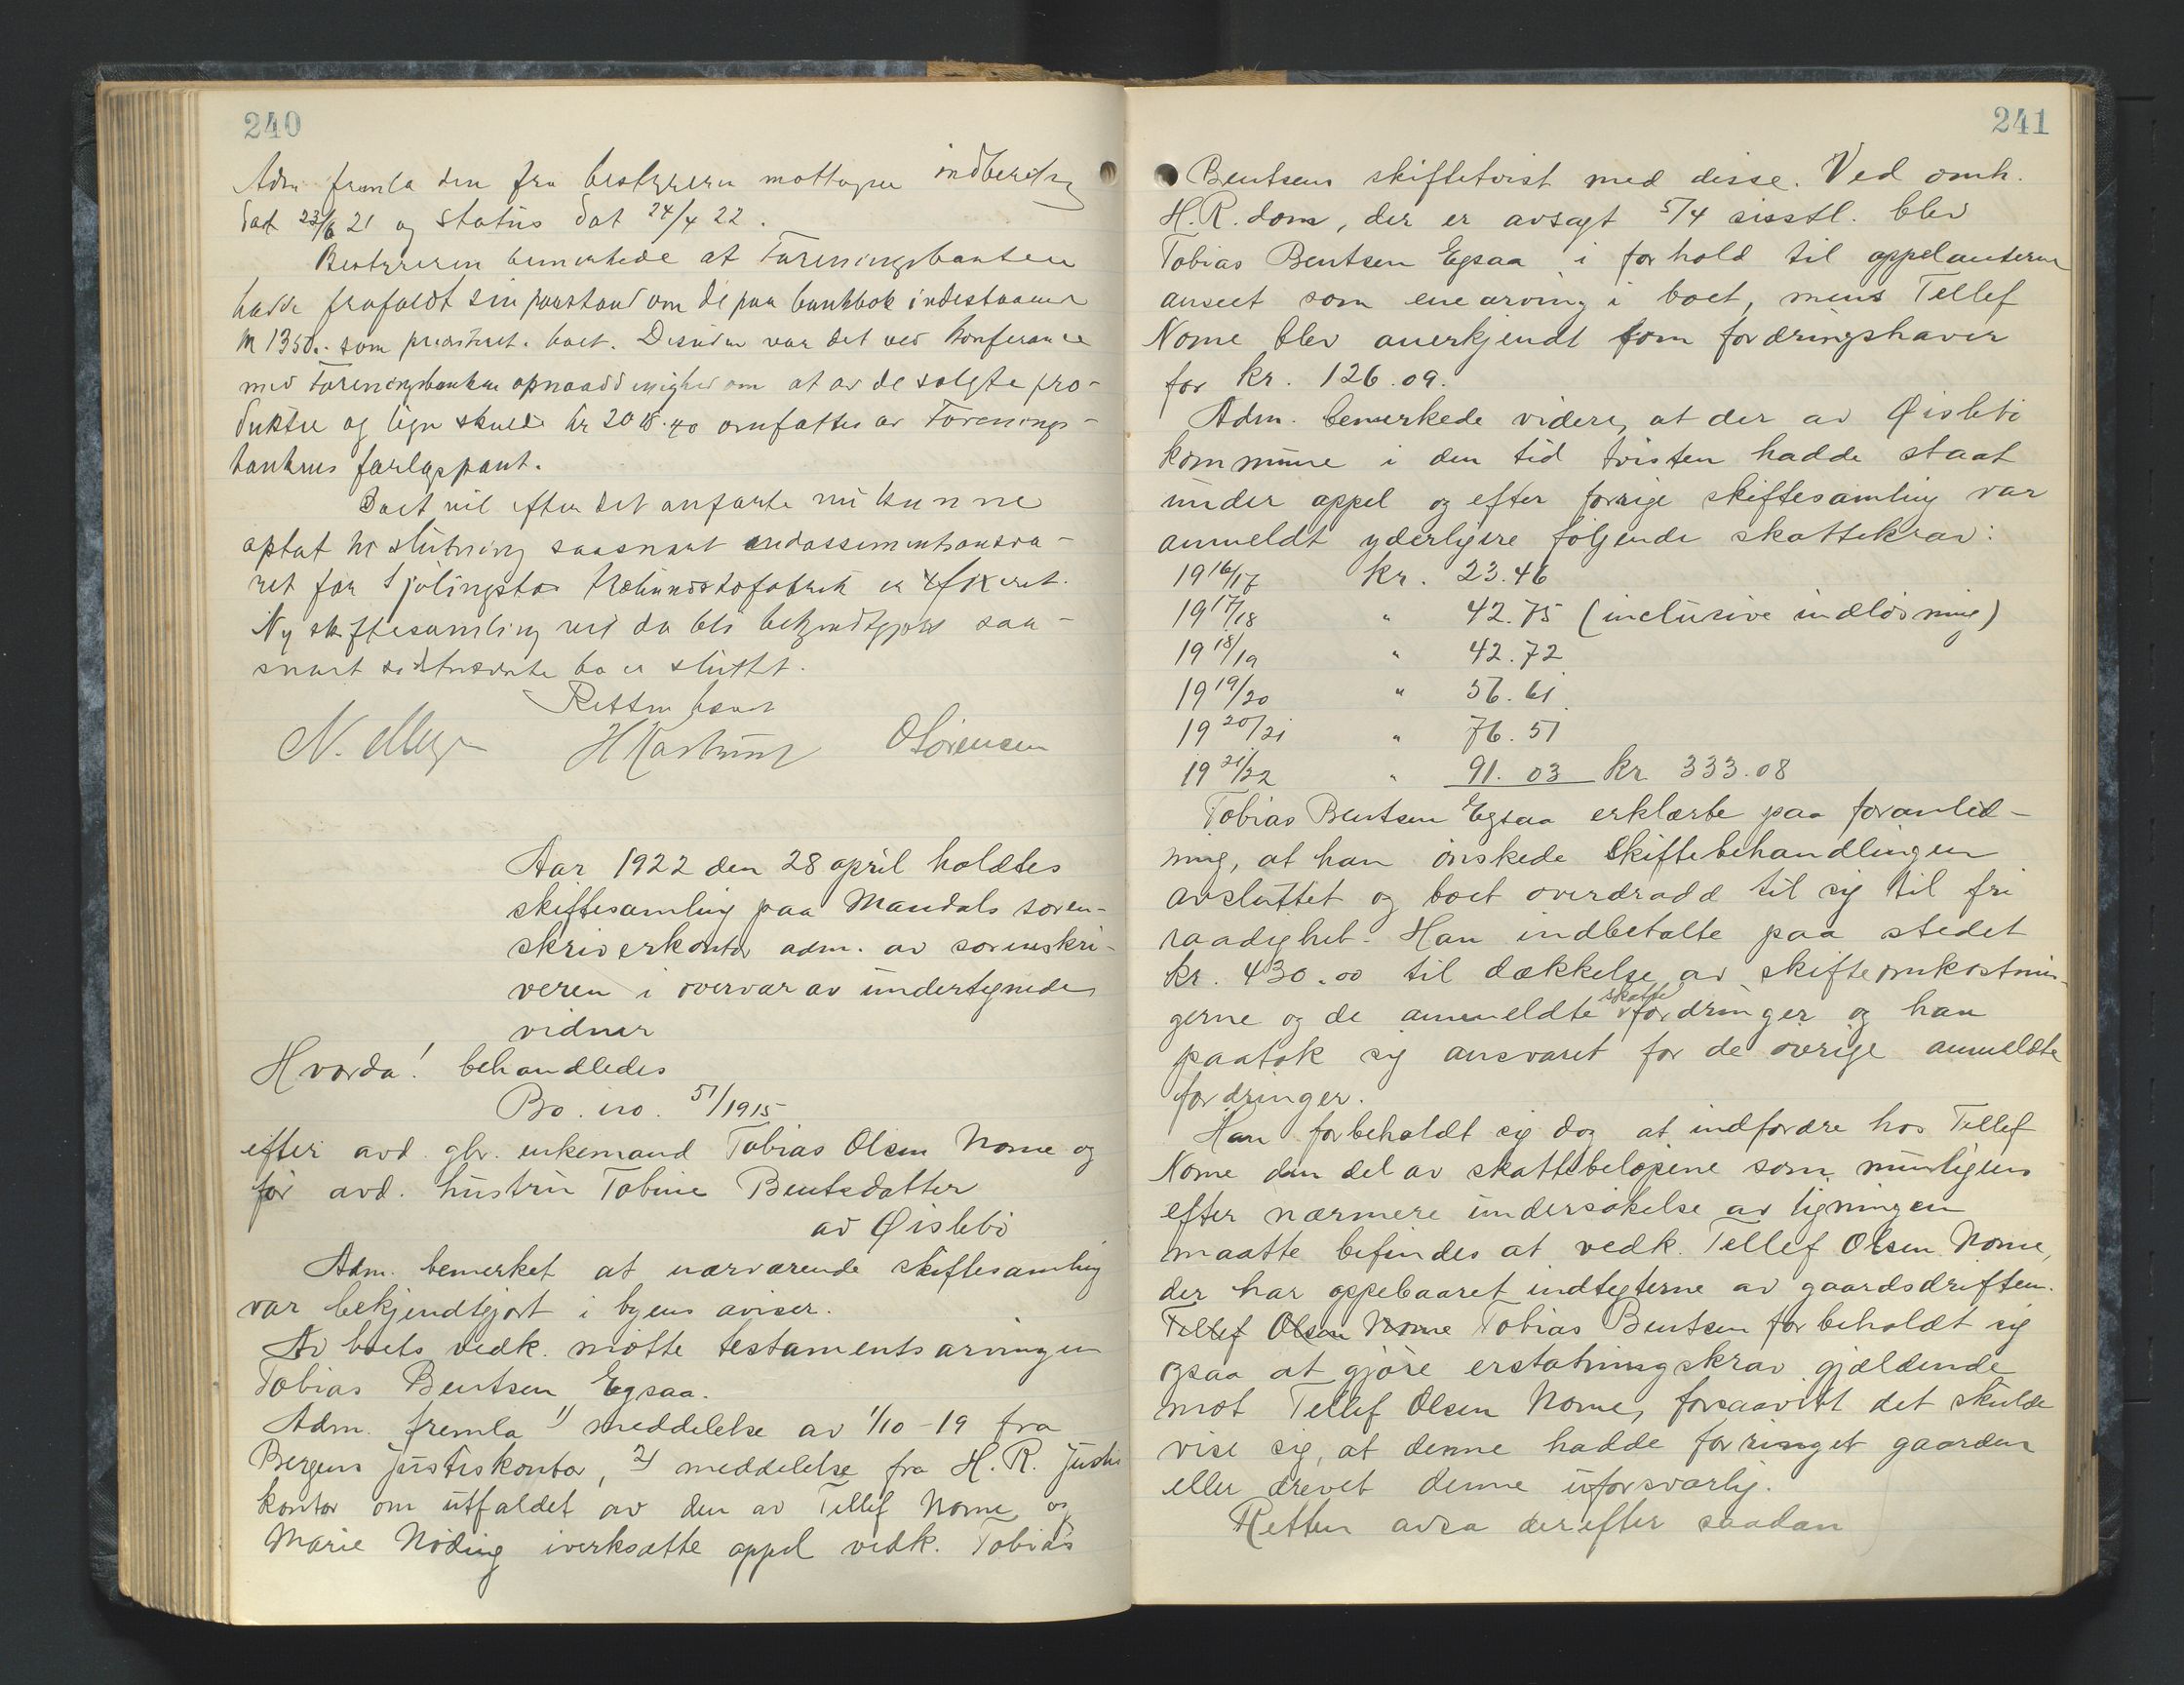 240
Adm fremla den fra bestyreren mottagne indberetng
dat 23/6 21 og status dat 24/4 22.
Bestyreren bemerkede at Foreningsbanken
hadde frafaldt sin paastand om de paa bankbok indestaaende
kr 1350.- som prioritert i boet. Desuden var det ved konferance
med Foreningsbanken opnaadd enighed om at av de solgte pro-
dukter og lign skulde kr 2018.40 omfattes av Forenings-
bankens forlagspant.
Boet vil efter det anførte nu kunne
optat til slutning saasnart endossementsansva-
ret for Sjølingstad Uldvarefabrik er fixeret.
Ny skiftesamling vil da bli bekjendtgjort saa-
snart sidstnævnte bo er sluttet.
Retten hævet
N. Meyer H Kastrup O Sørensen
Aar 1922 den 28 april holdtes
skiftesamling paa Mandals soren-
skriverkontor adm. av sorenskri-
veren i overvær av undertegnede
vidner
Hvorda! behandledes
Bo. no. 51/1915
efter avd. gbr. enkemand Tobias Olsen Nome og
før avd. hustru Tobine Bentsdatter
av Øislebø
Adm. bemerket at nærværende skiftesamling
var bekjendtgjort i byens aviser.
Av boets vedk. møtte testamentsarvingen
Tobias Bentsen Egsaa.
Adm. fremla 1) meddelelse av 1/10-19 fra
Bergens justiskontor, 2) meddelelse fra H.R. justis
kontor om utfaldet av den av Tellef Nome og
Marie Nøding iverksatte appel vedk. Tobias
241
Bentsens skiftetvist med disse. Ved omh.
H.R. dom, der er avsagt 5/4 sisstl. blev
Tobias Bentsen Egsaa i forhold til appelanterne
anseet som enearving i boet, mens Tellef
Nome blev anerkjendt som fordringshaver
for kr. 126.09.
Adm. bemerkede videre, at der av Øislebø
kommune i den tid tvisten hadde staat
under appel og efter forrige skiftesamling var
anmeldt yderligere følgende skattekrav:
19 16/17 kr. 23.46
19 17/18 " 42.75 (inclusive indløsning)
19 18/19 " 42.72
19 19/20 " 56.61
19 20/21 " 76.51
19 21/22 " 91.03 kr 333.08
Tobias Bentsen Egsaa erklærte paa foranled-
ning, at han ønskede skiftebehandlingen
avsluttet og boet overdradd til sig til fri
raadighet. Han indbetalte paa stedet
kr. 430.00 til dækkelse av skifteomkostnin-
gerne og de anmeldte skattefordringer og han
paatok sig ansvaret for de øvrige anmeldte
fordringer.
Han forbeholdt sig dog at indfordre hos Tellef
Nome den del av skattebeløpene som muligens
efter nærmere undersøkelse av ligningen
maatte befindes at vedk. Tellef Olsen Nome,
der har oppebaaret indtegterne av gaardsdriften.
Tellef Olsen Nome Tobias Bentsen forbeholdt sig
ogsaa at gjøre erstatningskrav gjældende
mot Tellef Olsen Nome, forsaavitt det skulde
vise sig, at denne hadde forringet gaarden
eller drevet denne uforsvarlig.
Retten avsa derefter saadan